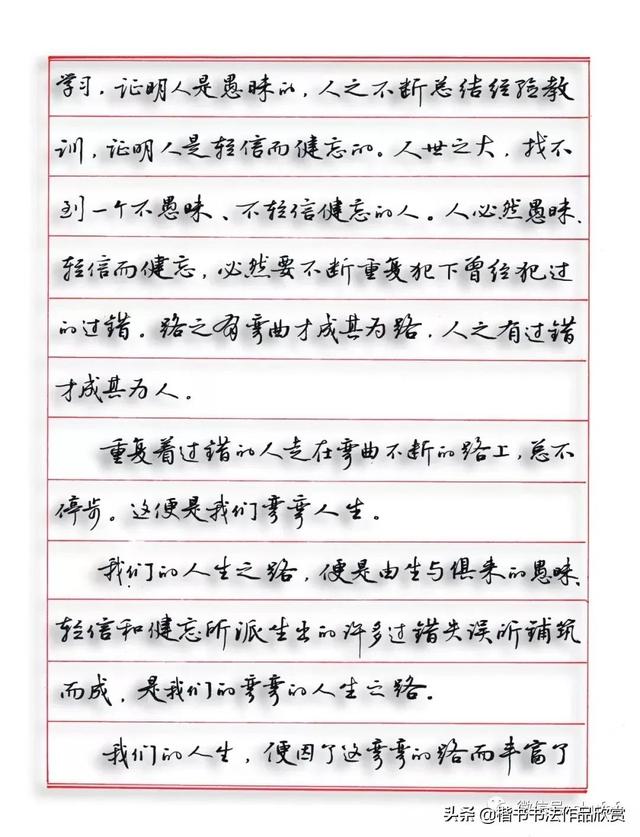 学习，证明人是愚昧的，人之不断总结经验教
训，证明人是轻信而健忘的。人世之大，找不
到一个不愚昧、不轻信健忘的人。人必然愚昧、
轻信而健忘，必然要不断重复犯下曾经犯过
的过错。路之有弯曲才成其为路，人之有过错
才成其为人。
重复着过错的人走在弯曲不断的路上，总不
停步。这便是我们弯弯人生。
我们的人生之路，便是由生与俱来的愚昧、
轻信和健忘所派生出的许多过错失误所铺筑
而成，是我们的弯弯的人生之路。
我们的人生，便因了这弯弯的路而丰富了
微信号
头条@楷书书法作品欣赏